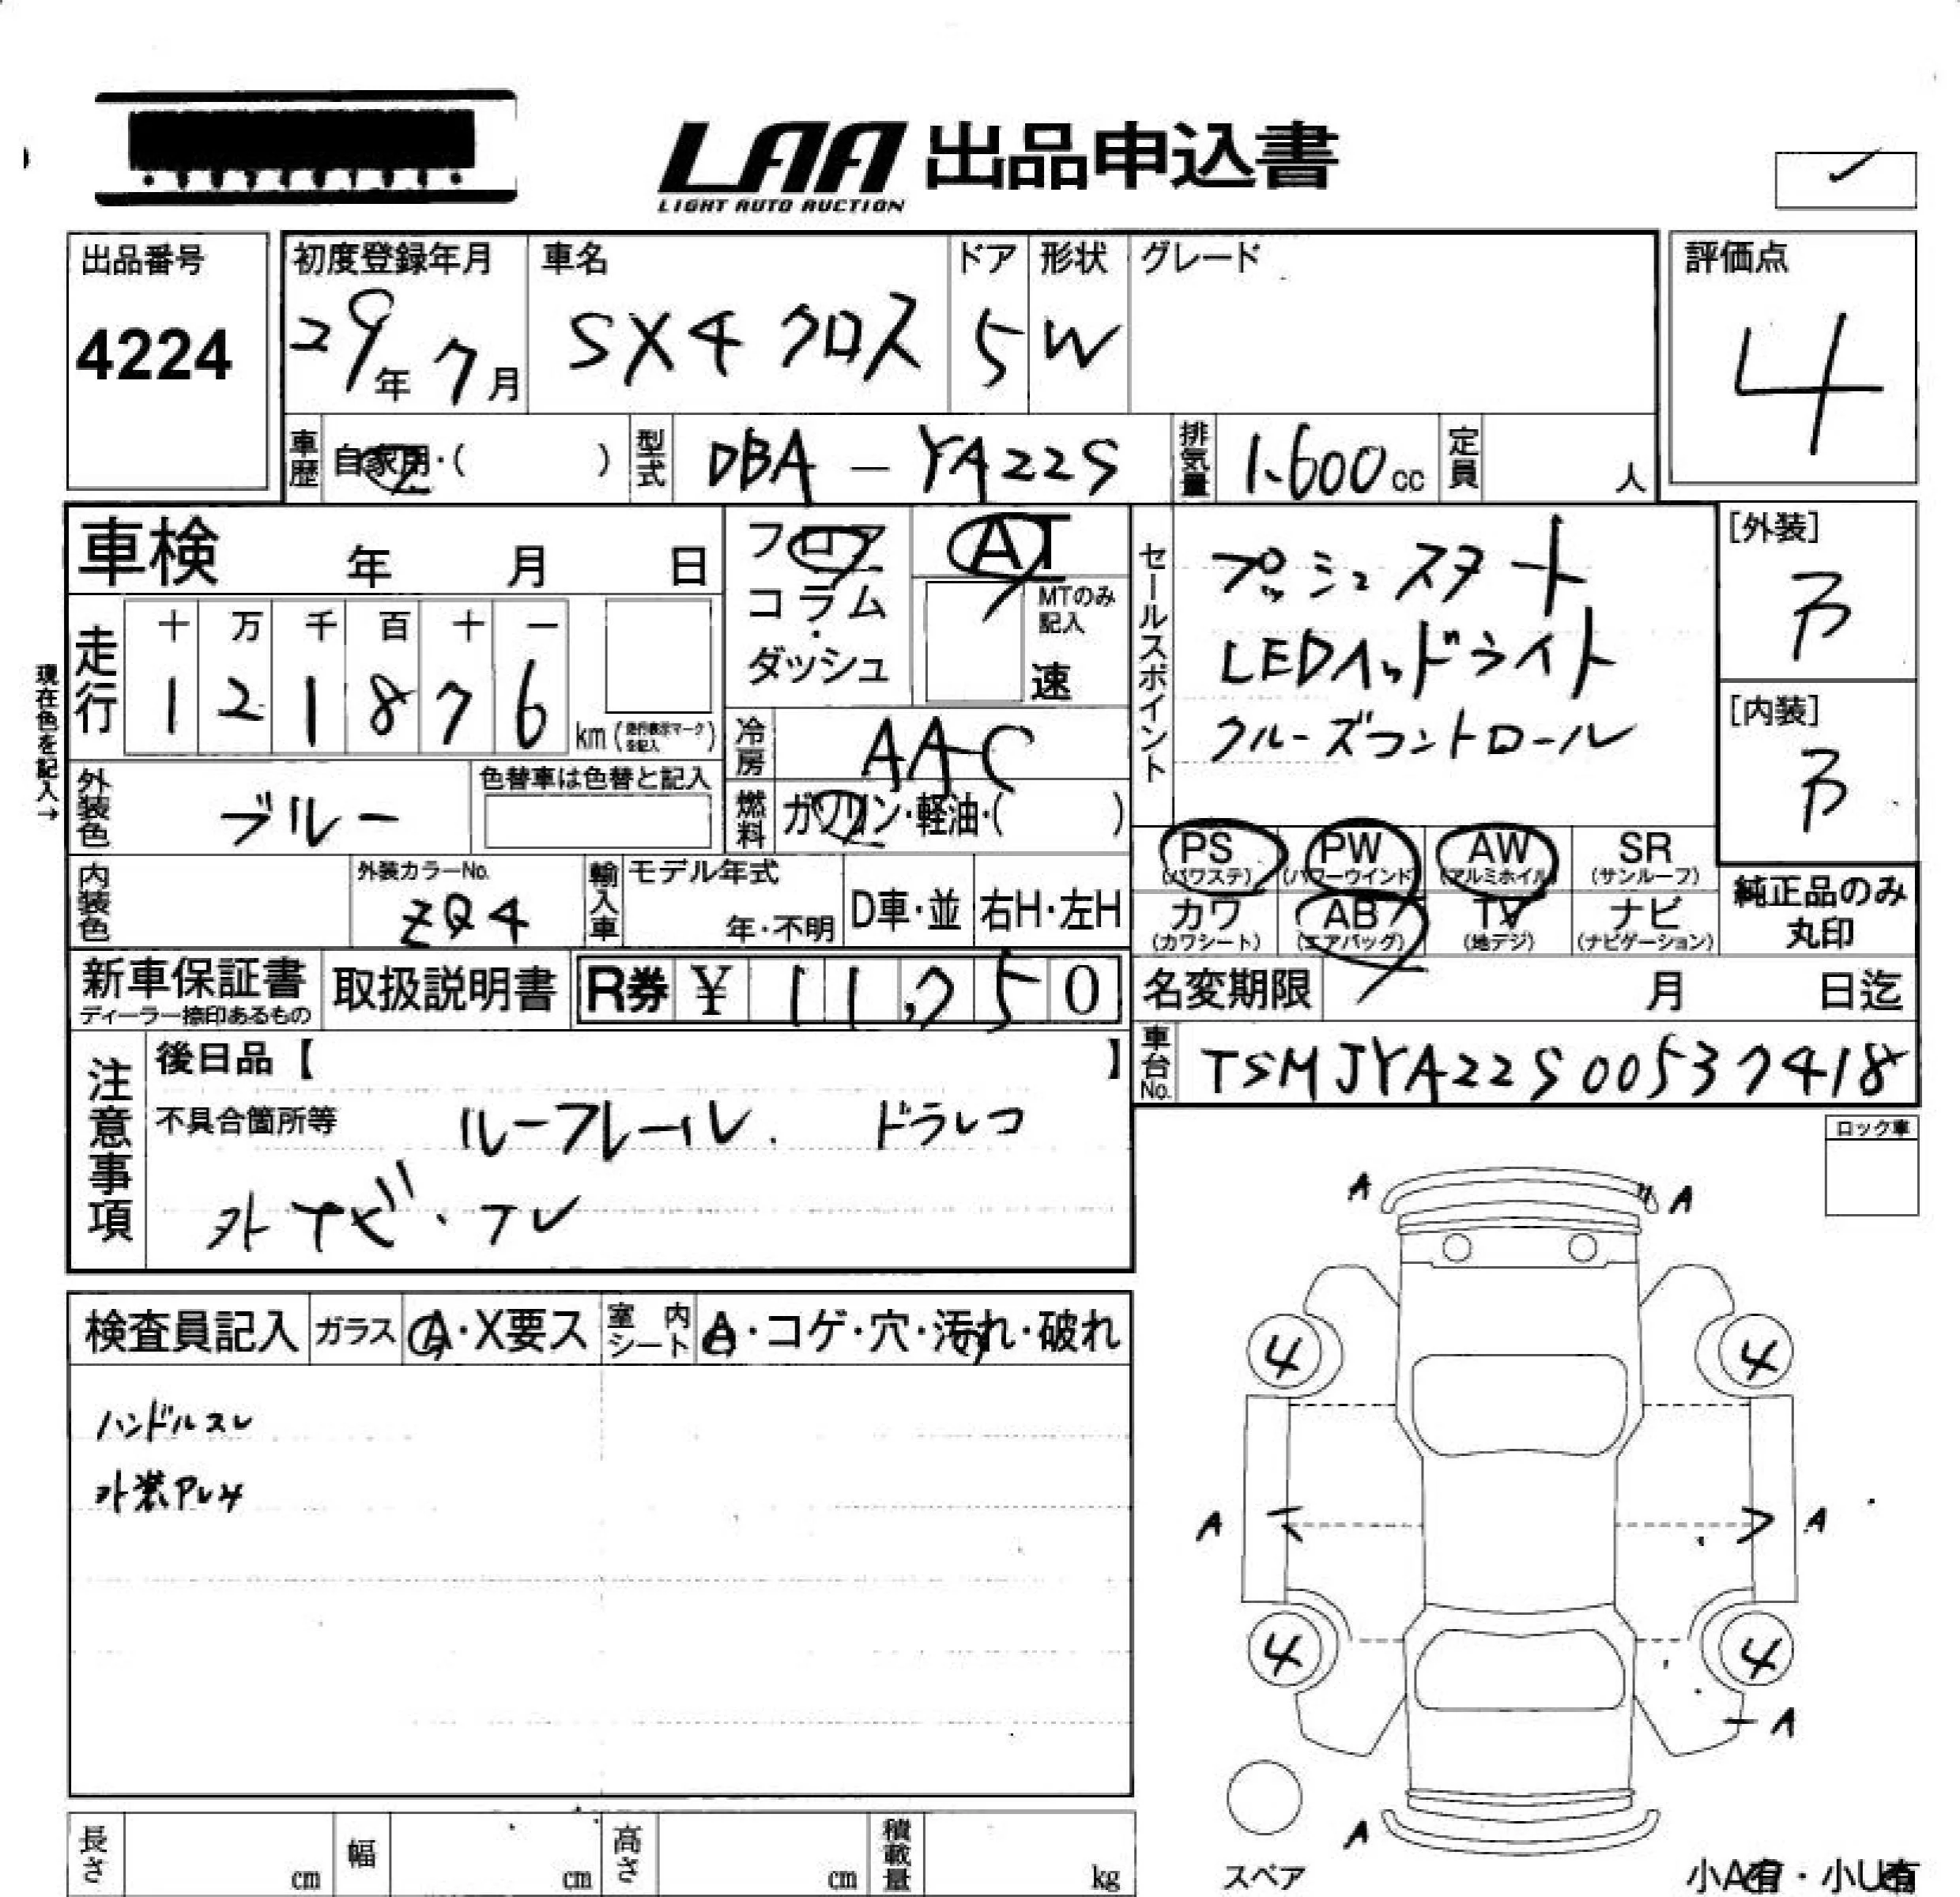 LAA 出品申込書
LIGHT AUTO AUCTION
出品番号
4224
初度登録年月
29年 7月
車名
SX4 クロス
ドア
5
形状
W
グレード
評価点
4
車歴 自家用・( )
型式 DBA - YA22S
排気量 1.600cc
定員 人
車検 年 月 日
フロア
コラム
・
ダッシュ
AT
MTのみ
記入
速
セールスポイント
プッシュスタート
LEDヘッドライト
クルーズコントロール
[外装]
B
[内装]
B
現在色を記入→
走行
十 万 千 百 十 一
1 2 1 8 7 6
km (走行表示マークを記入)
冷房 AAC
燃料 ガソリン・軽油・( )
外装色 ブルー
色替車は色替と記入
内装色
外装カラーNo.
ZQ4
輸入車
モデル年式
年・不明
D車・並
右H・左H
PS
(パワステ)
PW
(パワーウインド)
AW
(アルミホイル)
SR
(サンルーフ)
カワ
(カワシート)
AB
(エアバッグ)
TV
(地デジ)
ナビ
(ナビゲーション)
純正品のみ
丸印
新車保証書
ディーラー捺印あるもの
取扱説明書
R券 ¥ 11,250
名変期限 月 日迄
車台No. TSMJYA22S00537418
注意事項
後日品【 】
不具合箇所等 ルーフレール. ドラレコ
外ナビ・TV
ロック車
検査員記入
ガラス A・X要ス
室内シート A・コゲ・穴・汚れ・破れ
ハンドルスレ
A
A
4
4
A
A
4
4
A
A
スペア
小A有・小U有
長さ cm
幅 cm
高さ cm
積載量 kg